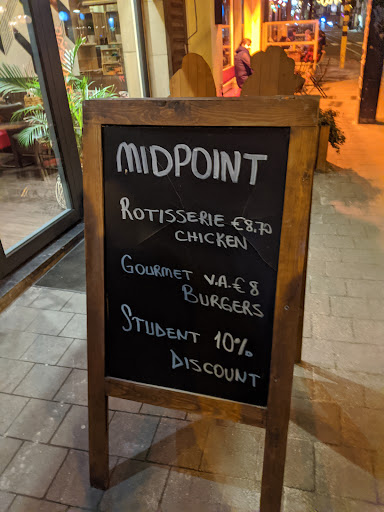 MIDPOINT
ROTISSERIE €8,70
CHICKEN
GOURMET V.A. €8
BURGERS
STUDENT 10%
DISCOUNT